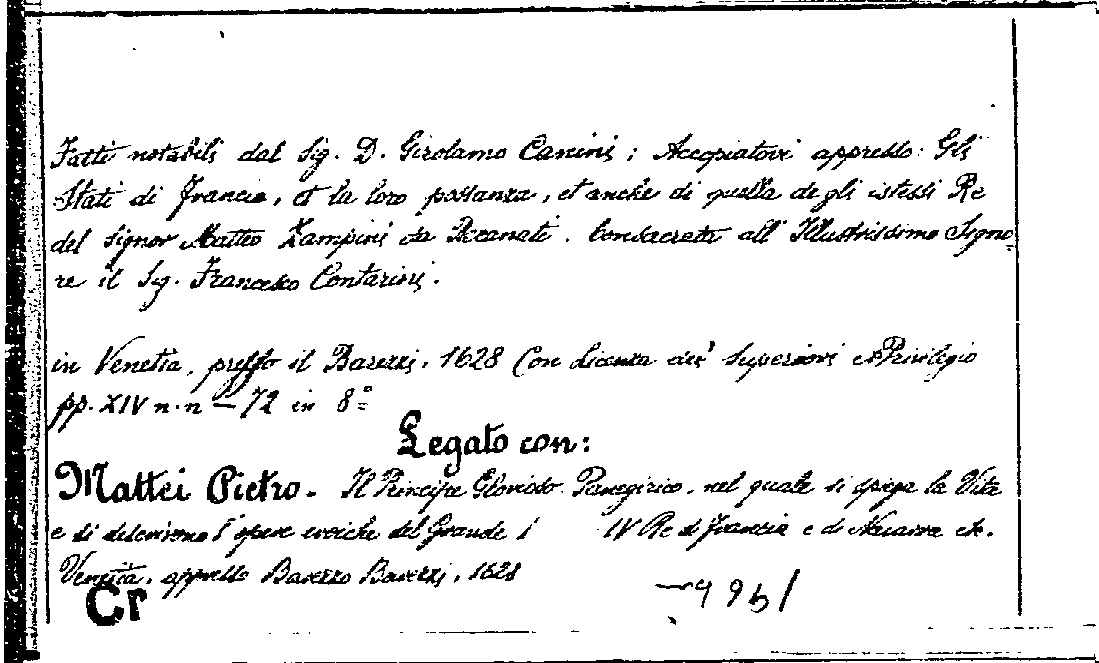 Fatti notabili dal Sig. D. Girolamo Canini; Accopiatovi appresso: Gli
Stati di Francia, et la loro possanza, et anche di quella de gli istessi Re
del Signor Matteo Zampini da Recanati. Consacrata all' Illustrissimo Signo=
re il Sig. Francesco Contarini.
in Venetia, presso il Barezzi, 1628 Con licenza de' Superiori e Privilegio
pp. XIV n.n — 72 in 8°
Legato con:
Mattei Pietro. Il Principe Glorioso. Panegirico. nel quale si spiega la Vita
e si descrivono l'opere eroiche del Grande IV Re di Francia e di Navarra etc.
Venetia, appresso Barezzo Barezzi, 1628
Cr